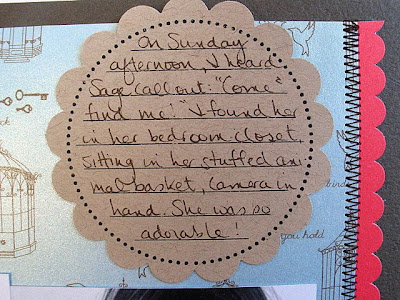 On Sunday
afternoon, I heard
Sage call out: "Come
find me!" I found her
in her bedroom closet,
sitting in her stuffed ani-
mal basket, camera in
hand. She was so
adorable!
bird
you hold